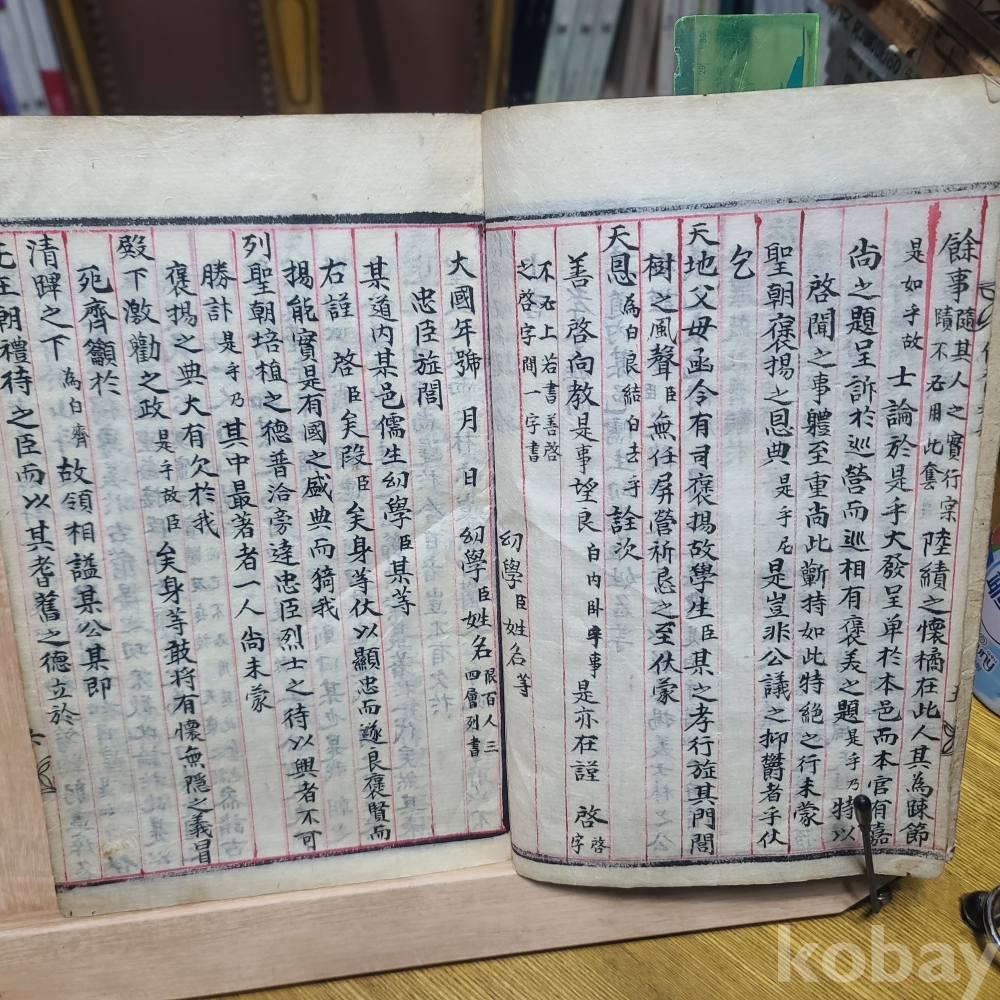 餘事隨其人之實行宲
蹟不必用此套 陸績之懷橘在此人其為踈節
是如乎故 士論於是乎大發呈单於本邑而本官有嘉
尚之題呈訴於巡營而巡相有褒美之題是乎乃特以
啓聞之事體至重尚此蘄持如此特絕之行未蒙
聖朝褒揚之恩典是乎尼是豈非公議之抑欝者乎伏
乞
天地父母函令有司褒揚故學生臣某之孝行旌其門閭
樹之風聲臣無任屏營祈恳之至伏蒙
天恩為白良結白去乎詮次
善啓向教是事望良白内卧乎事是亦在謹 啓啓字
不必上若書善啓
之啓字間一字書
幼學臣姓名等
大國年號 月 日 幼學臣姓名限百人三
四層列書
忠臣旌閭
某道内某邑儒生幼學臣某等
右謹 啓臣矣段臣矣身等伏以顯忠而遂良褒賢而
揚能實是有國之盛典而猗我
列聖朝培植之德普洽旁達忠臣烈士之待以興者不可
勝計是乎乃其中最著者一人尚未蒙
褒揚之典大有欠於我
殿下激勸之政是乎故臣矣身等敢将有懷無隱之義冒
死齊籲於
清蹕之下為白齊故領相謚某公某即
在朝禮待之臣而以其耆舊之德立於
kobay